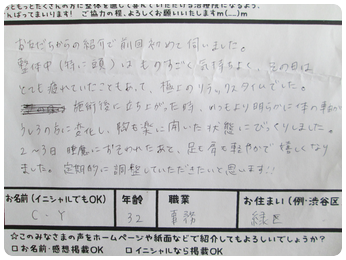 もっともっとたくさんの方に整体を通じて喜んでいただける治療院になるよう、
がんばってまいります! ご協力の程、よろしくお願いいたしますm(__)m
お友だちからの紹介で前回初めて伺いました。
整体中(特に頭)はものすごく気持ちよく、その日は
とても疲れていたこともあって、極上のリラックスタイムでした。
施術後に立ち上がった時、いつもより明らかに体の重心が
うしろの方に変化し、胸も楽に開いた状態にびっくりしました。
2〜3日睡魔におそわれたあと、足も肩も軽やかで嬉しくなり
ました。定期的に調整していただきたいと思います!!
お名前(イニシャルでもOK) 年齢 職業 お住まい(例:渋谷区
C・Y 32 事務 緑区
☆このみなさまの声をホームページや紙面などで紹介してもよろしいでしょうか?
□お名前・感想掲載OK □イニシャルなら掲載OK